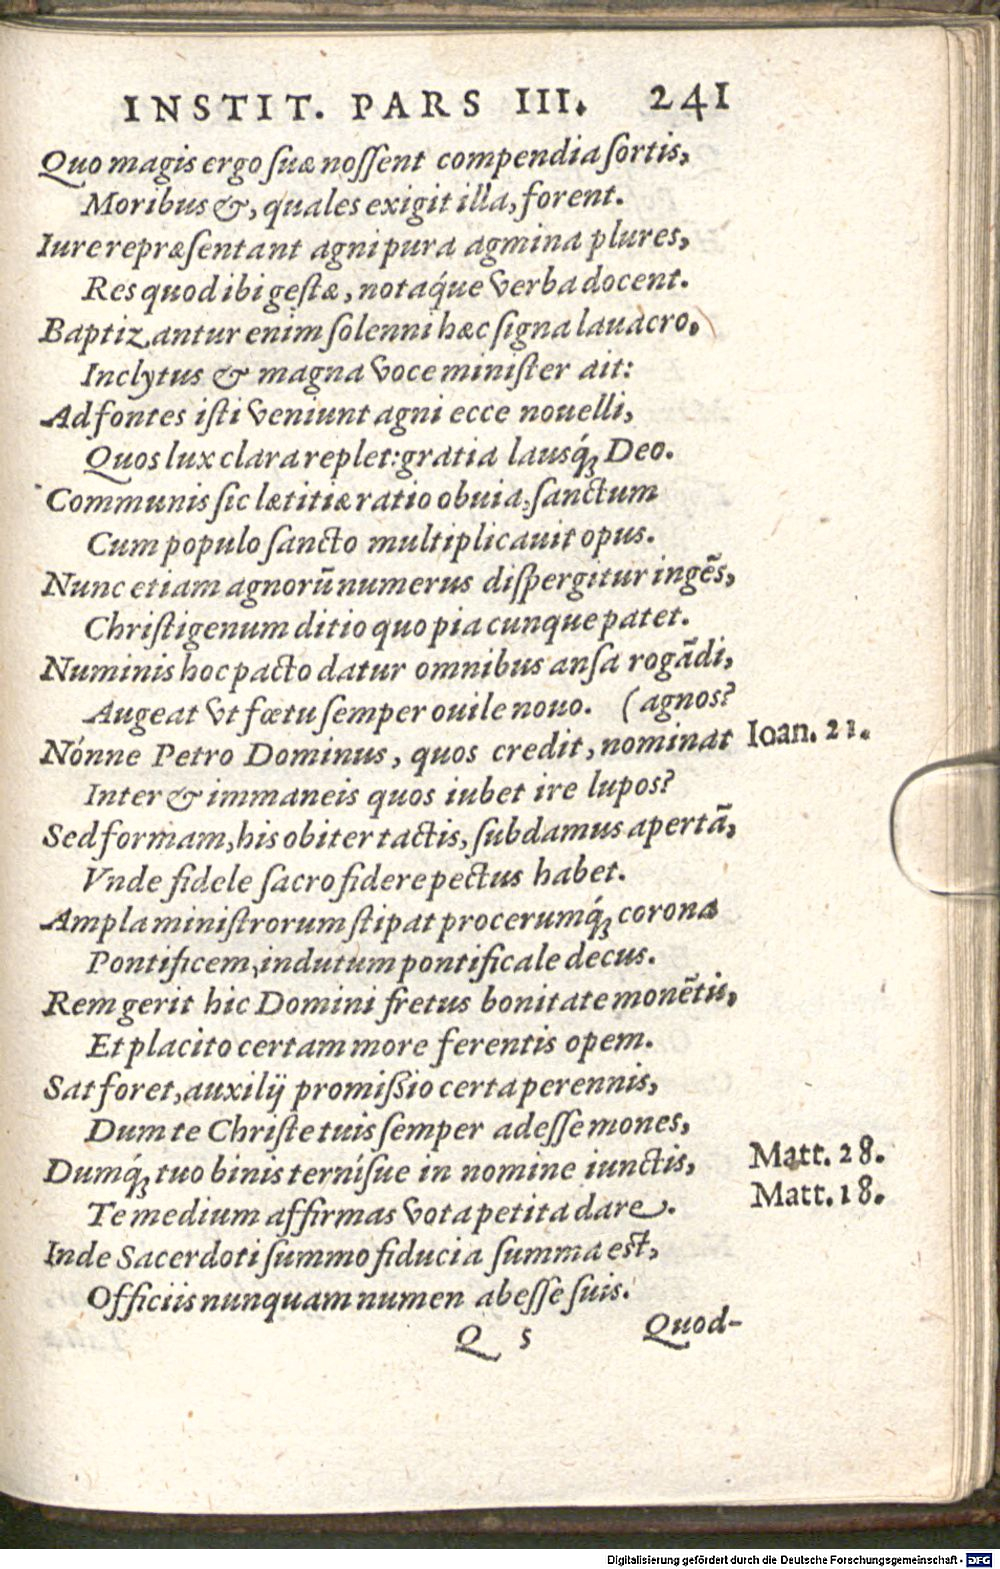 INSTIT. PARS III. 241
Quo magis ergo suæ nossent compendia sortis,
Moribus &, quales exigit illa, forent.
Iure repræsentant agni pura agmina plures,
Res quod ibi gestæ, notáque verba docent.
Baptizantur enim solenni hæc signa lauacro.
Inclytus & magna voce minister ait:
Ad fontes isti veniunt agni ecce nouelli,
Quos lux clara replet: gratia lausq́; Deo.
Communis sic lætitiæ ratio obuia, sanctum
Cum populo sancto multiplicauit opus.
Nunc etiam agnorū numerus dispergitur ingēs,
Christigenum ditio quo pia cunque patet.
Numinis hoc pacto datur omnibus ansa rogādi,
Augeat vt fœtu semper ouile nouo. (agnos?
Nónne Petro Dominus, quos credit, nominat Ioan. 21.
Inter & immaneis quos iubet ire lupos?
Sed formam, his obiter tactis, subdamus apertā,
Vnde fidele sacro fidere pectus habet.
Ampla ministrorum stipat procerumq́; corona
Pontificem, indutum pontificale decus.
Rem gerit hic Domini fretus bonitate monētis,
Et placito certam more ferentis opem.
Sat foret, auxilij promissio certa perennis,
Dum te Christe tuis semper adesse mones,
Dumq́; tuo binis ternísue in nomine iunctis, Matt. 28.
Te medium affirmas vota petita dare. Matt. 18.
Inde Sacerdoti summo fiducia summa est,
Officiis nunquam numen abesse suis.
Q 5 Quod-
Digitalisierung gefördert durch die Deutsche Forschungsgemeinschaft - DFG